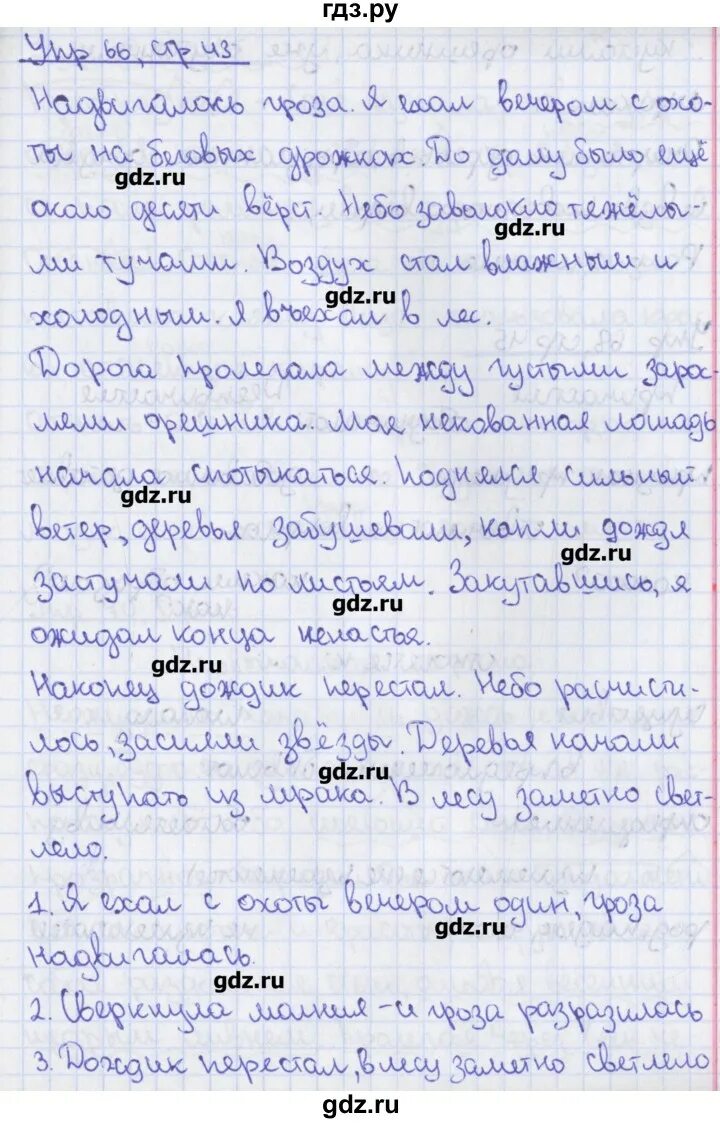 гдз.ру
Упр 66, стр 43
Надвигалась гроза. Я ехал вечером с охо-
ты на беговых дрожках. До дому было ещё
gdz.ru
около десяти вёрст. Небо заволокло тяжёлы-
gdz.ru
ми тучами. Воздух стал влажным и
gdz.ru
холодным. Я въехал в лес.
Дорога пролегала между густыми зарос-
лями орешника. Моя некованная лошадь
начала спотыкаться. Поднялся сильный
gdz.ru
ветер, деревья забушевали, капли дождя
gdz.ru
застучали по листьям. Закутавшись, я
gdz.ru
ожидал конца ненастья.
gdz.ru
Наконец дождик перестал. Небо расчисти-
лось, засияли звёзды. Деревья начали
gdz.ru
выступать из мрака. В лесу заметно свет-
лело.
1. Я ехал с охоты вечером один, гроза
gdz.ru
надвигалась.
gdz.ru
2. Сверкнула молния – и гроза разразилась
3. Дождик перестал, в лесу заметно светлело
gdz.ru